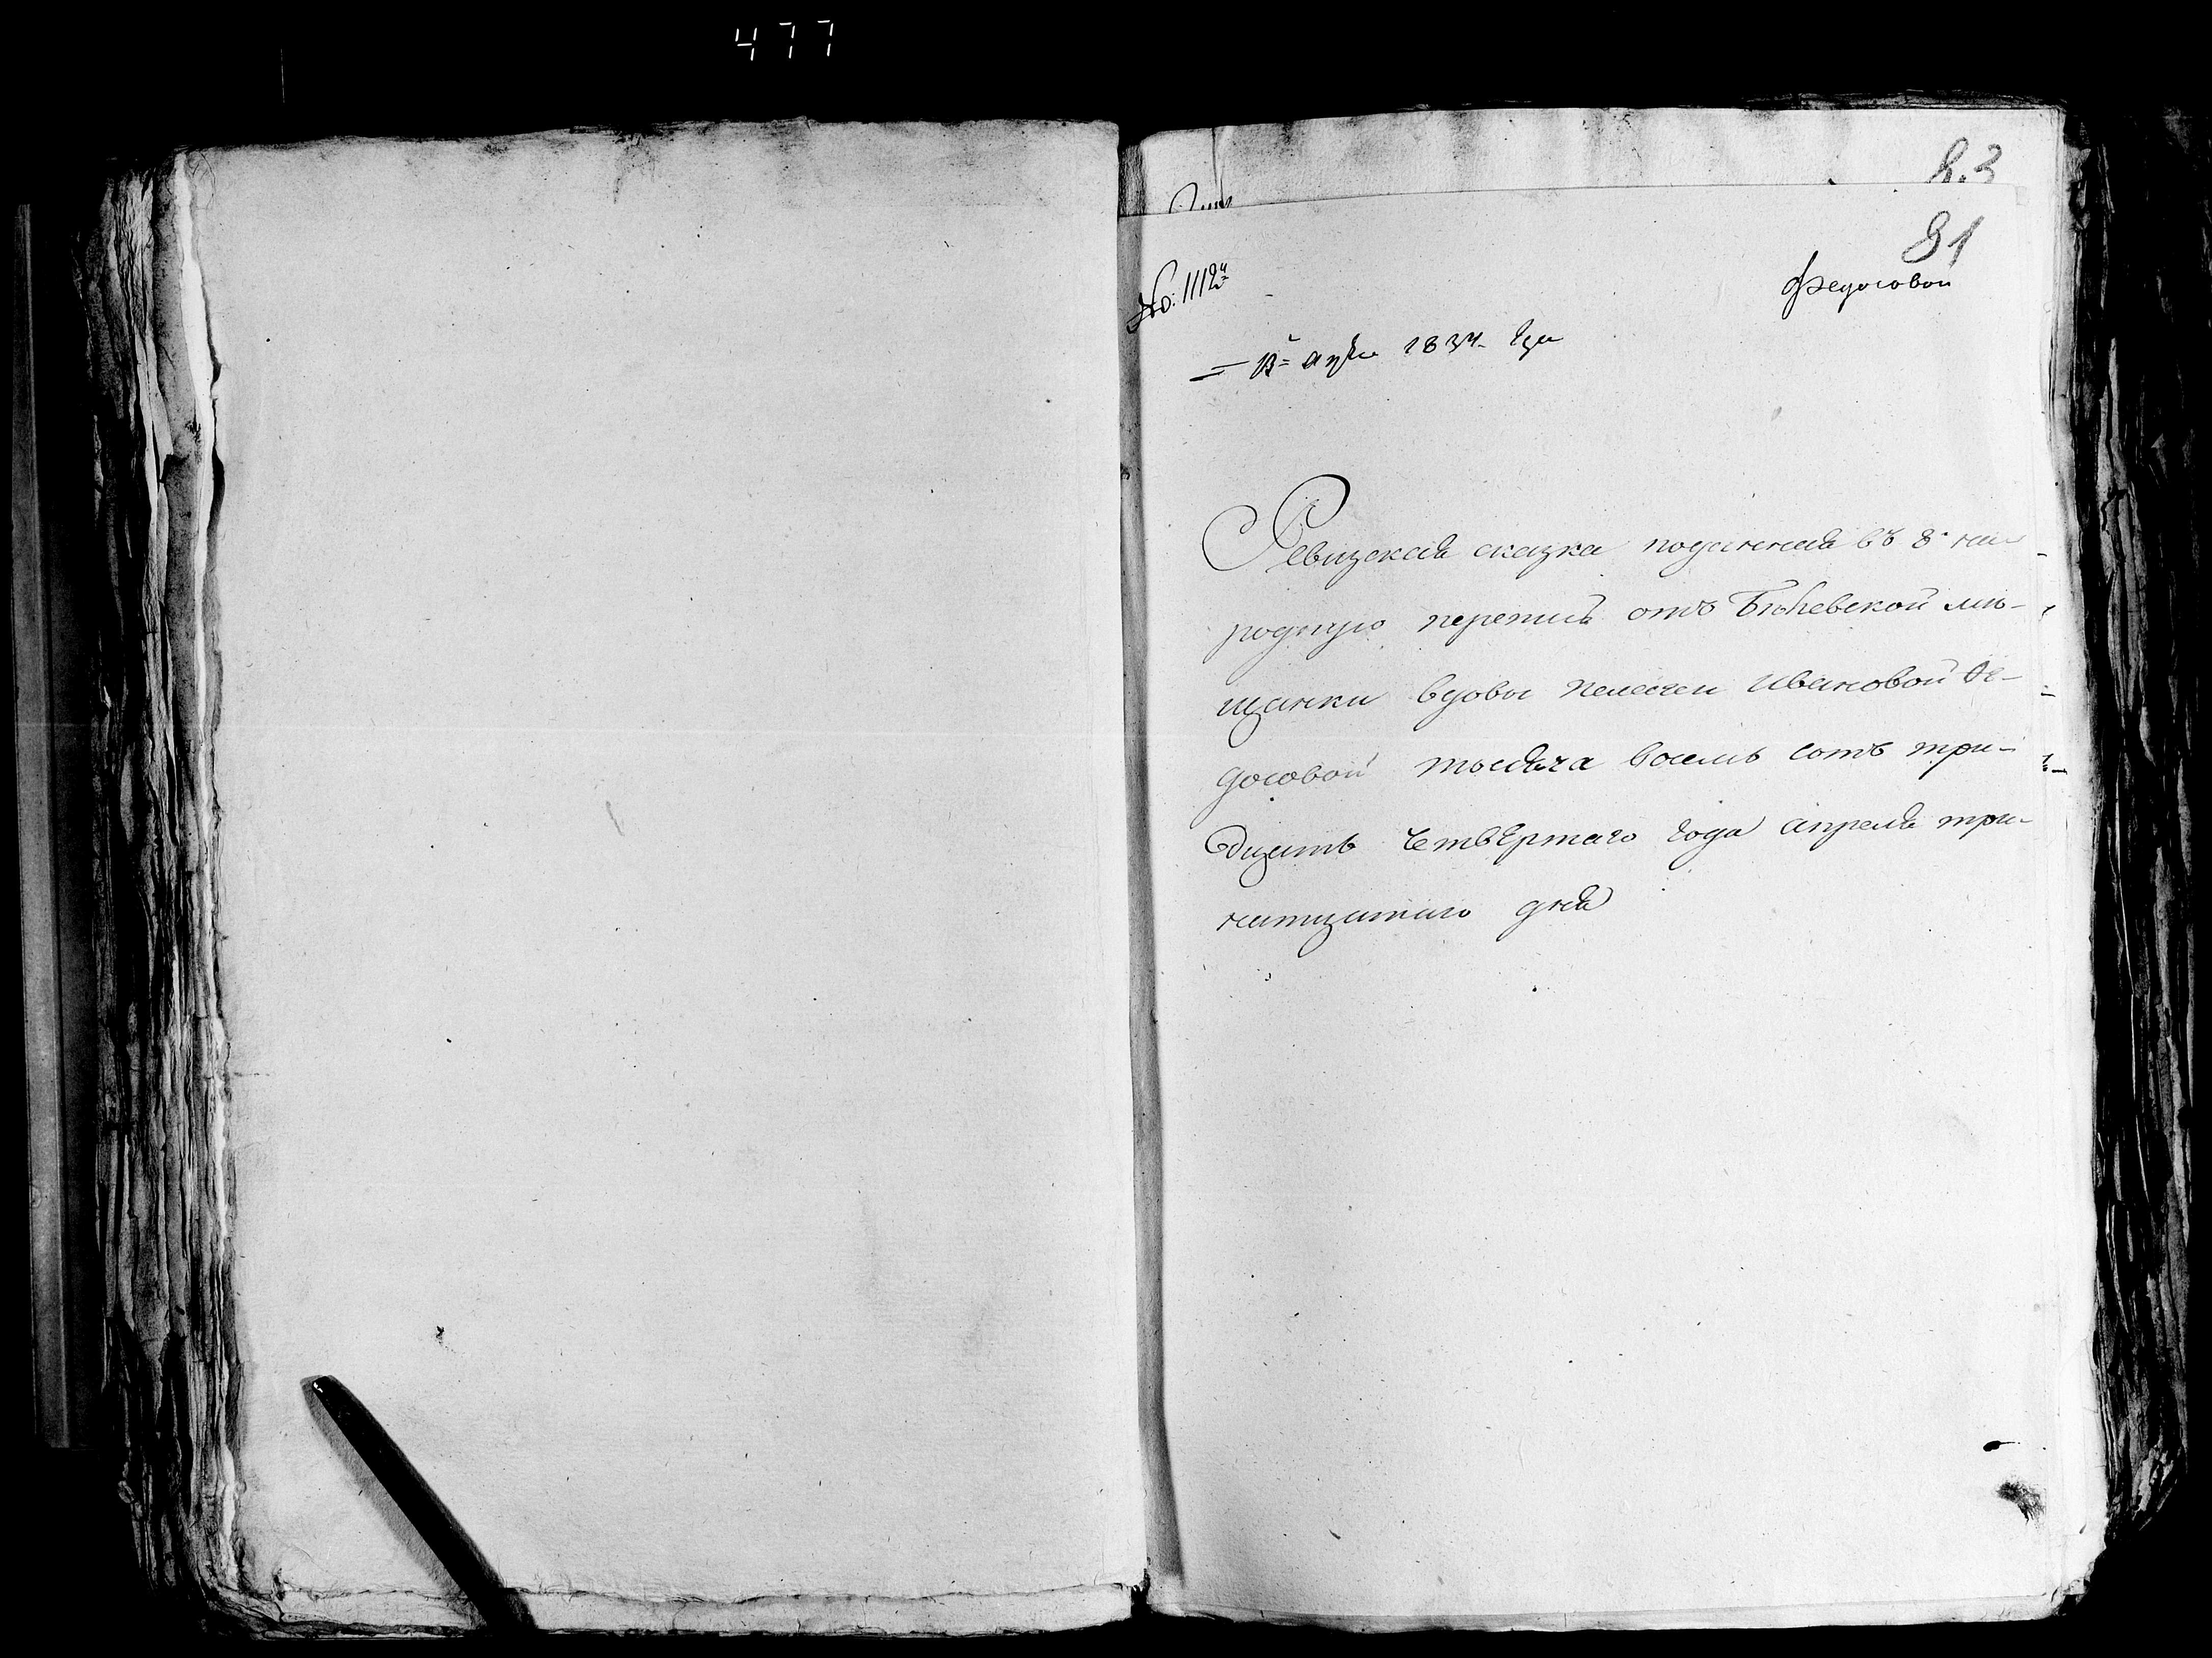 477
83
81
№: 1112й
Федосовой
13= апрл 1834 года
Ревизская сказка поданная въ 8ю на-
родную перепись отъ Бѣлевской мѣ-
щанки вдовы Пелагеи Ивановой Ѳе-
досовой тысяча восемь сотъ три-
дцать четвертаго года апреля три-
натцатаго дня